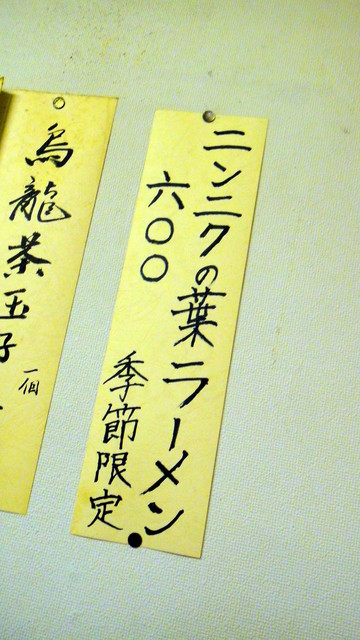 ニンニクの葉ラーメン
六〇〇
季節限定
烏龍茶玉子
一個